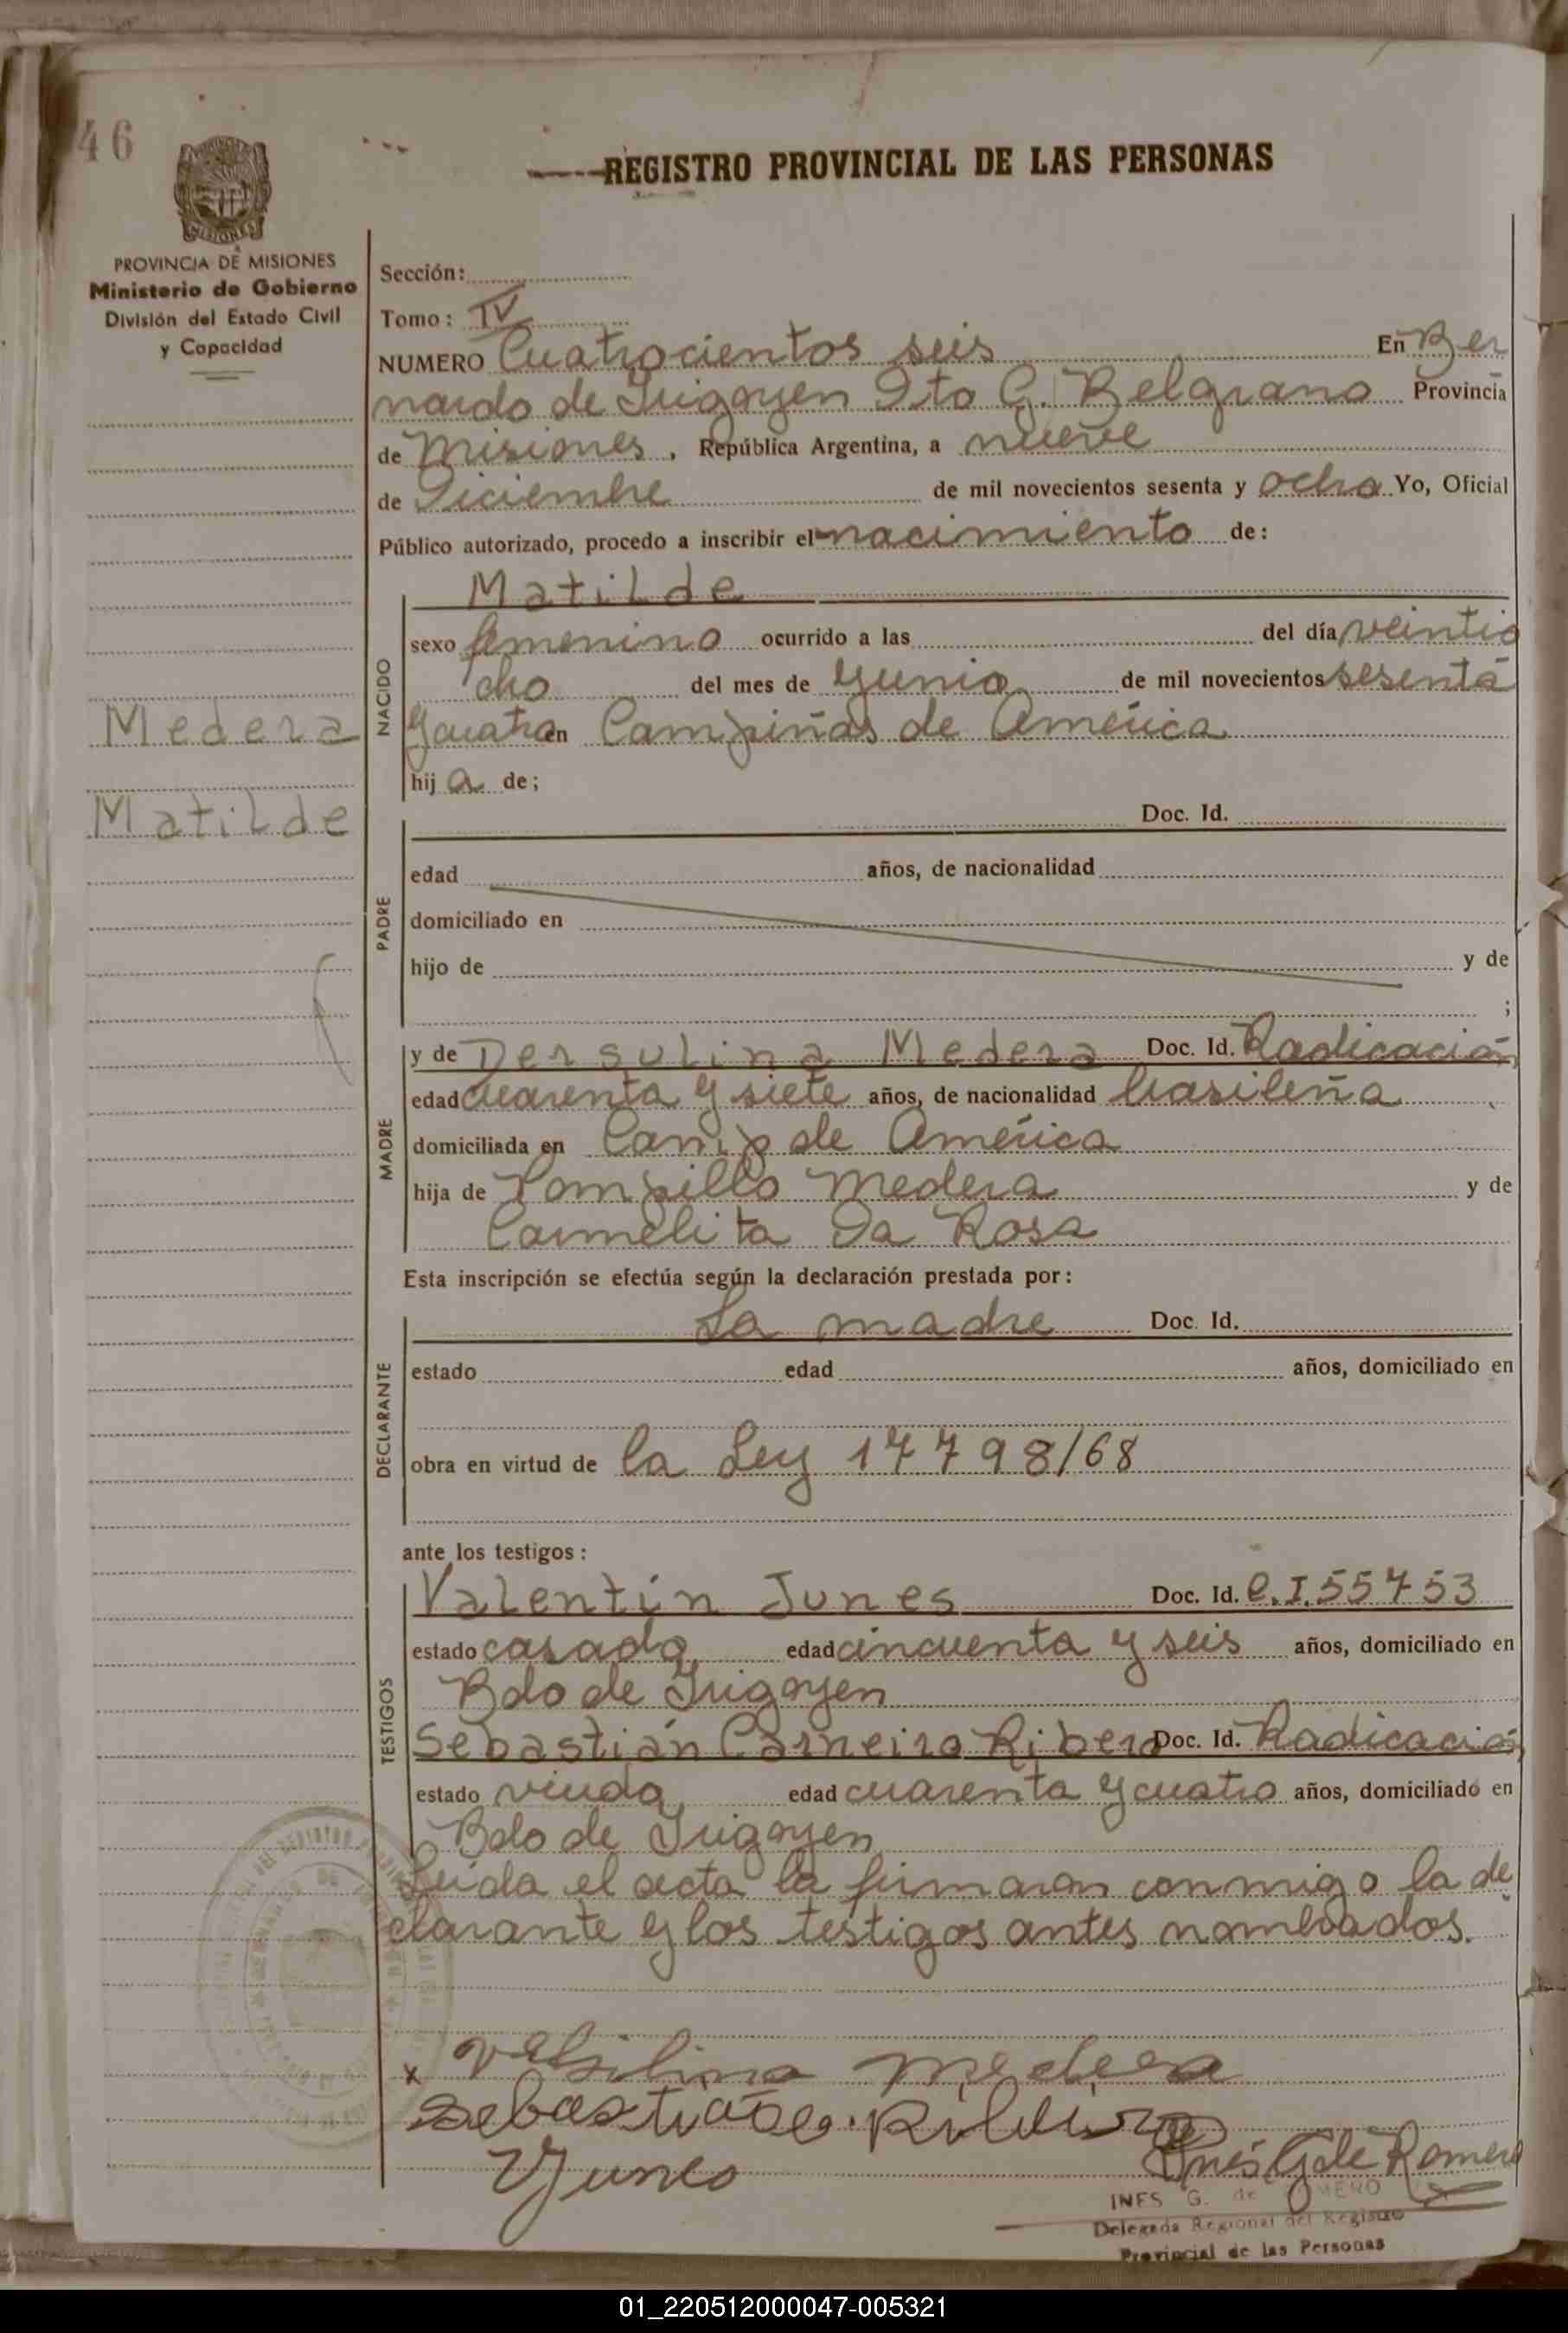 46
MISIONES
PROVINCIA DE MISIONES
Ministerio de Gobierno
División del Estado Civil
y Capacidad
REGISTRO PROVINCIAL DE LAS PERSONAS
Sección:
Tomo: IV
NUMERO Cuatrocientos seis En Ber
nardo de Irigoyen Dto G. Belgrano Provincia
de Misiones, República Argentina, a nueve
de Diciembre de mil novecientos sesenta y ocho Yo, Oficial
Público autorizado, procedo a inscribir el nacimiento de:
Matilde
NACIDO
sexo femenino ocurrido a las del día veintio
cho del mes de Junio de mil novecientos sesenta
y cuatro en Campiñas de América
hij a de;
Medera
Matilde
PADRE
Doc. Id.
edad años, de nacionalidad
domiciliado en
hijo de y de
;
MADRE
y de Dersulina Medera Doc. Id. Radicación
edad cuarenta y siete años, de nacionalidad brasileña
domiciliada en Camp de América
hija de Pompillo Medera y de
Carmelita Da Rosa
Esta inscripción se efectúa según la declaración prestada por:
DECLARANTE
La madre Doc. Id.
estado edad años, domiciliado en
obra en virtud de la Ley 17798/68
ante los testigos:
TESTIGOS
Valentín Junes Doc. Id. C.I. 55753
estado casado edad cincuenta y seis años, domiciliado en
Bdo de Irigoyen
Sebastián Carneiro Ribero Doc. Id. Radicación
estado viudo edad cuarenta y cuatro años, domiciliado en
Bdo de Irigoyen
Leída el acta la firmaran conmigo la de
clarante y los testigos antes nombrados.
x Medera
Junes
Inés G de Romero
INES G. de ROMERO
Delegada Regional del Registro
Provincial de las Personas
01_220512000047-005321